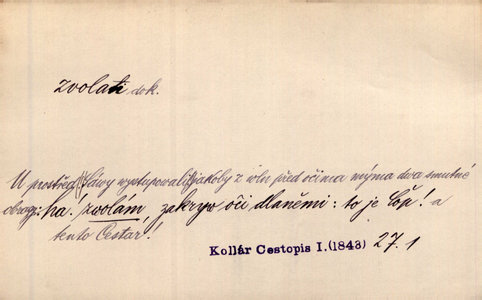 zvolati dok.
U prostřed Sáwy wystupowali jakoby z wln před očima mýma dwa smutné
obrazy: ha! zwolám, zakryw oči dlaněmi: to je Čop! a
tento Čestař!
Kollár Cestopis I. (1843) 27.1